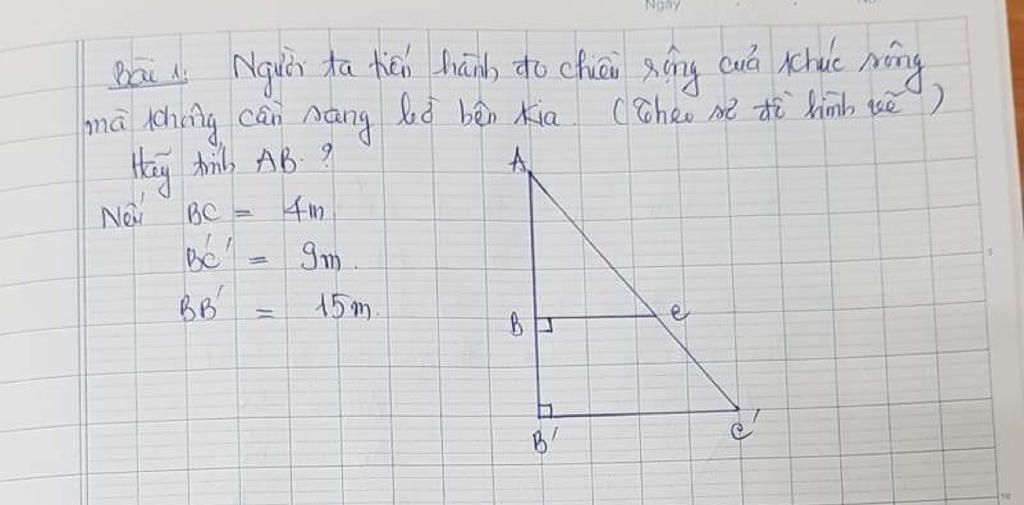 Ngày
Bài 1: Người ta tiến hành đo chiều rộng của khúc sông
mà không cần sang bờ bên kia. (Theo sơ đồ hình vẽ)
Hãy tính AB. ?
Nếu BC = 4m
B'C' = 9m.
BB' = 15m.
A
B
C
B'
C'